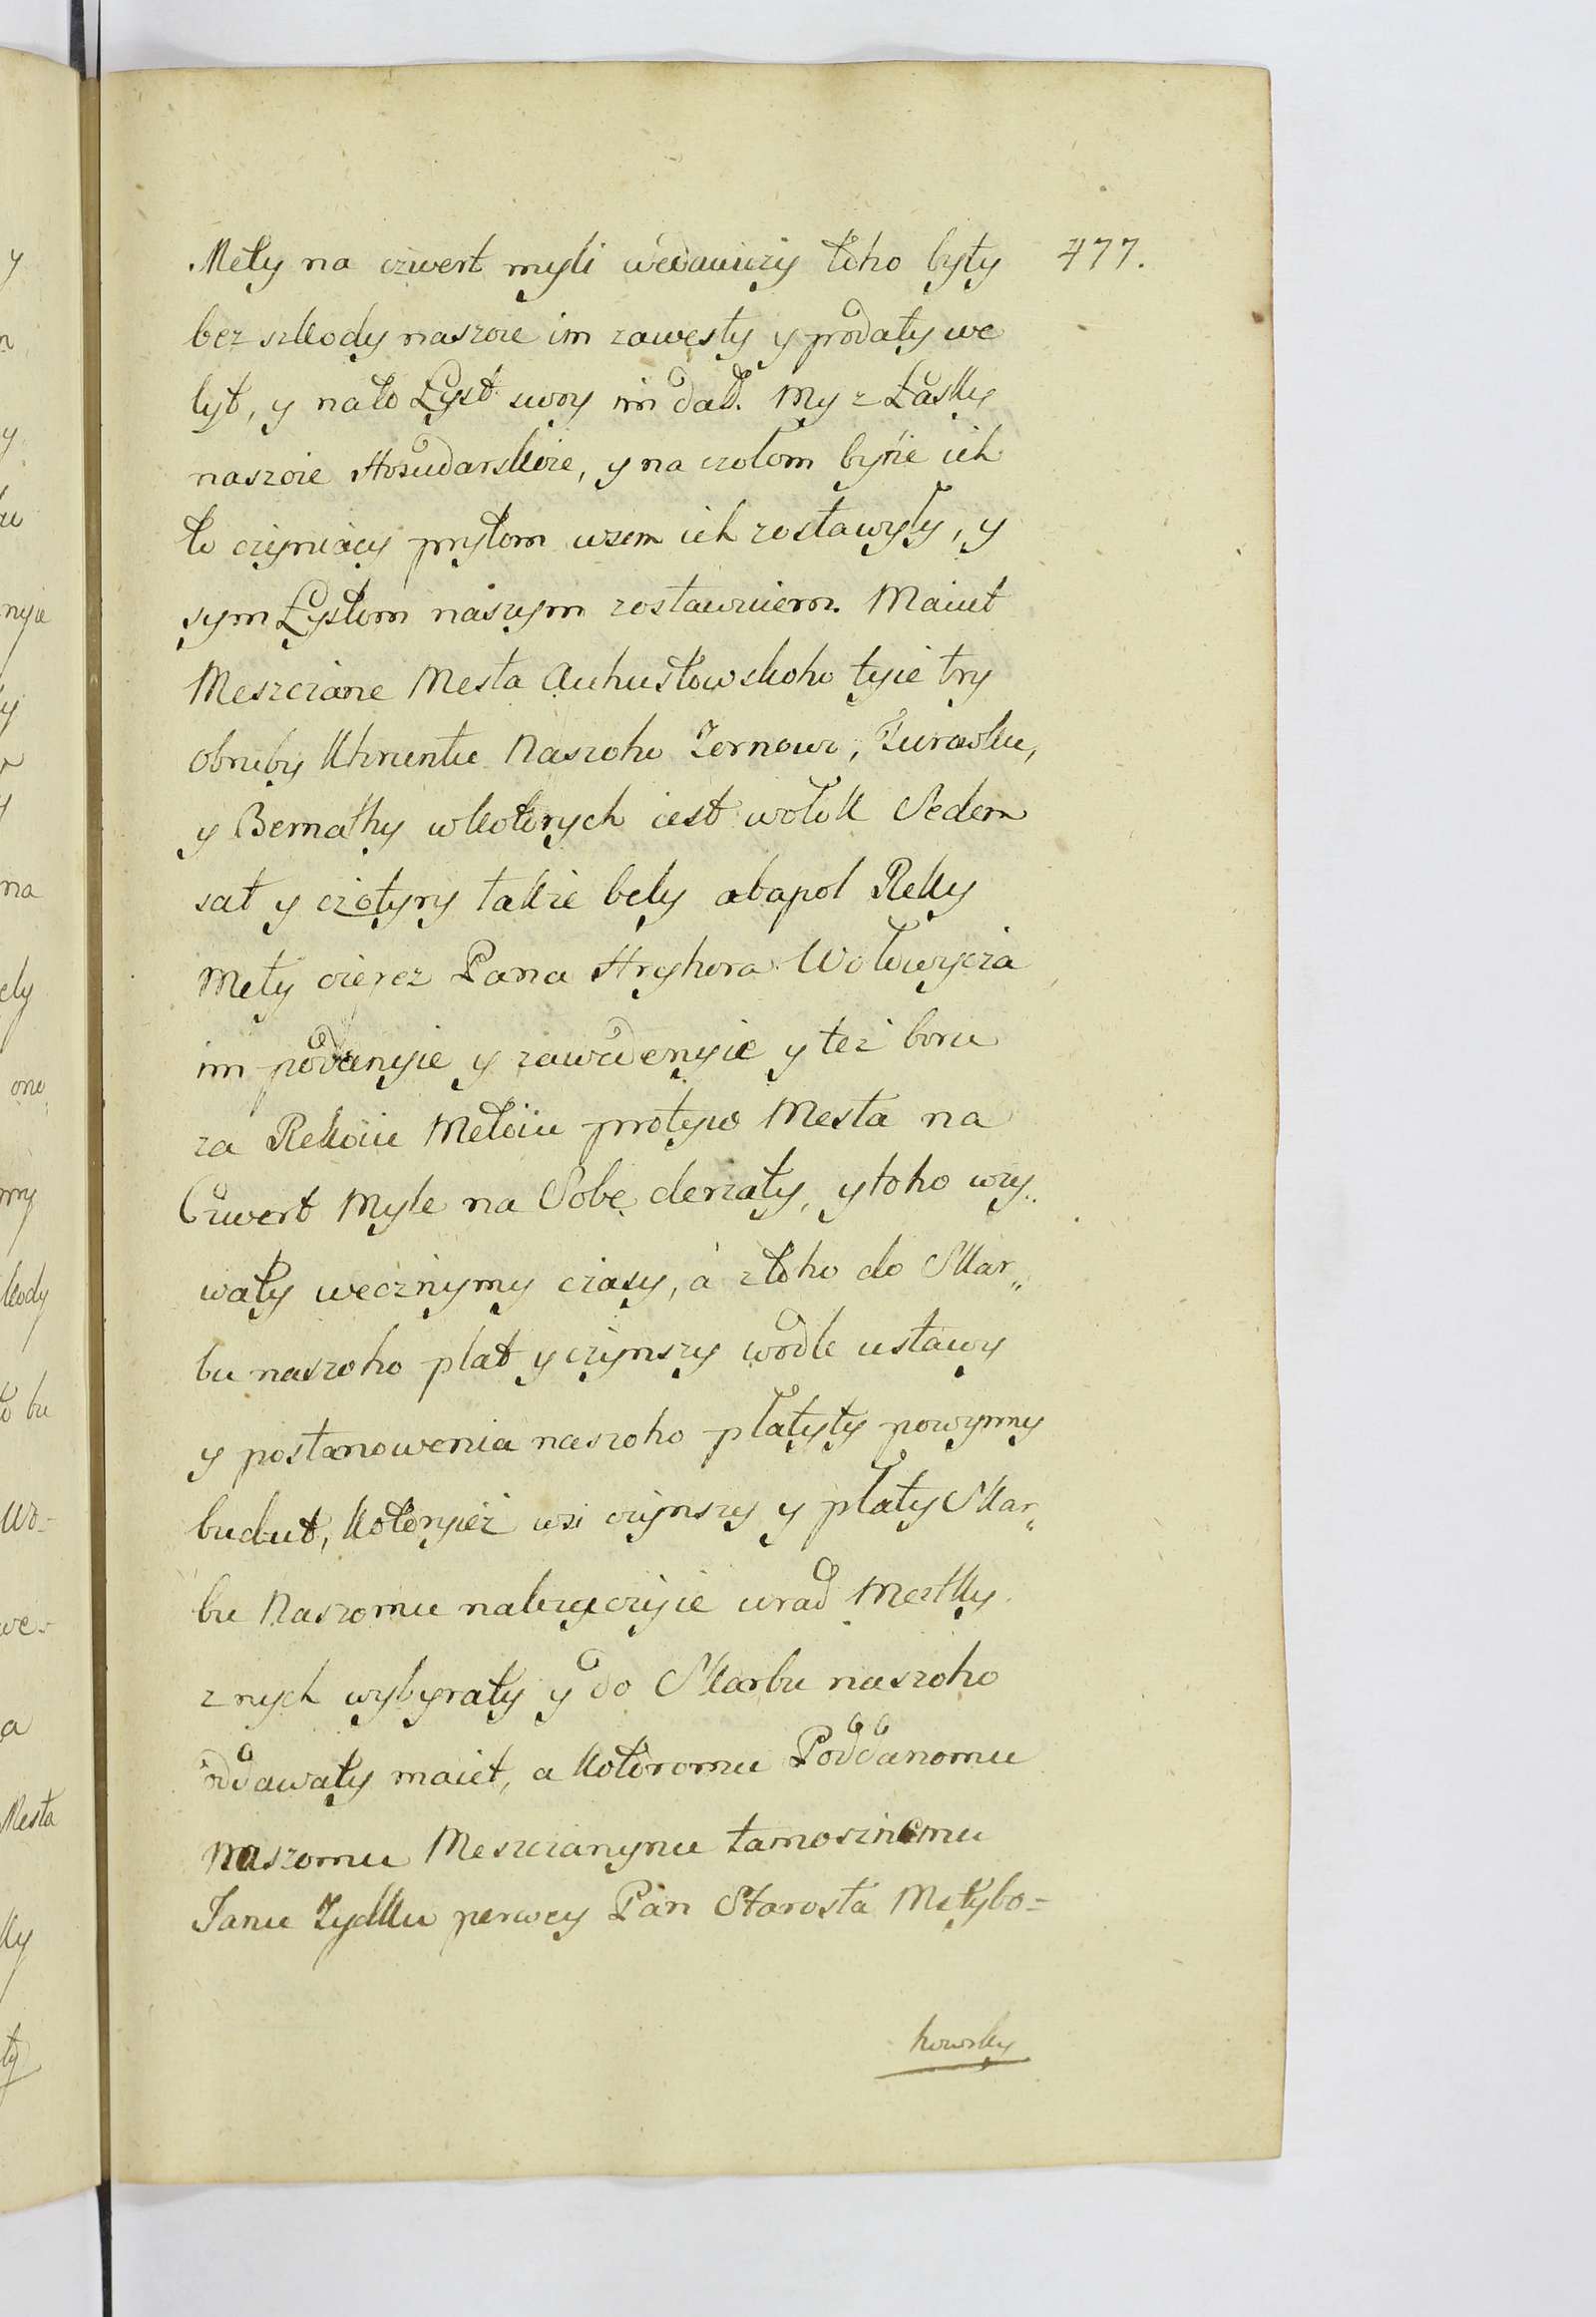 Mety na czwert myli wedauiczy toho byty 477.
bez szkody naszoie im zawesty y prodaty we
lyt, y nato Łyst swoy im dał. My z Łasky
naszoie Hosudarskoie, y na czołom bytie ich
to czyniaczy prytom wsem ich zostawyły, y
sym Łystom naszym zostawuiem. Maiut
Meszczane Mesta Auhustowskoho tyie try
obruby Khruntu Naszoho Zernowo, Turowku,
y Bernatky wkotorych iest wołok Sedem
sat y czotyry takie bely abapol Reky
Mety czerez Pana Hryhora Wołowycza
im podanyie y zawedenyie y też boru
za Rekoiu Metoiu protyw Mesta na
Czwert Myle na Sobe derzaty, y toho wzy„
waty wecznymy czasy, a ztoho do Skar„
bu naszoho plat y czynszy wodle ustawy
y postanowenia naszoho płatyty powynny
budut, kotoryież wsi czynszy y płaty Skar„
bu Naszomu nalezaczyie urad Mestky
znych wybyraty y do Skarbu naszoho
oddawaty maiet, a kotoromu Poddanomu
naszomu Meszczanynu tamosznemu
Janu Zydku perwey Pan Starosta Metybo=
howsky